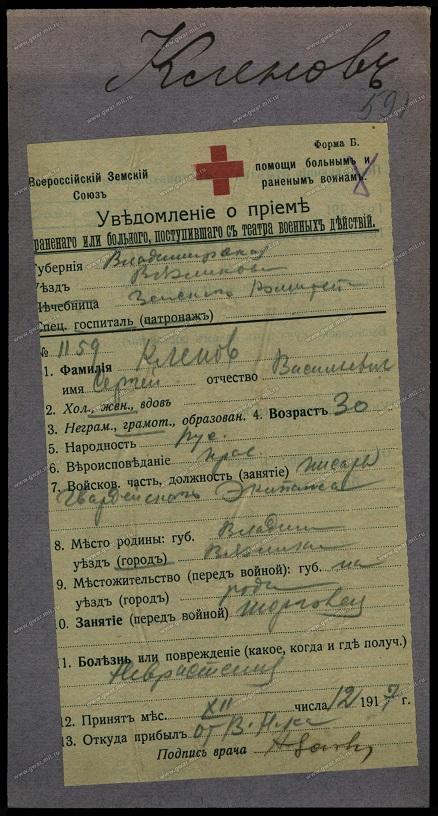 Кленовъ
59
Форма Б.
Всероссійскій Земскій
Союзъ
помощи больнымъ и
раненымъ воинамъ.
Увѣдомленіе о пріемѣ
раненаго или больного, поступившаго съ театра военныхъ дѣйствій.
Губернія Владимирская
Уѣздъ
Лечебница Земского Комитета
Спец. госпиталь (патронажъ)
№ 1159
1. Фамилія Кленов
имя Сергей отчество Васильевич
2. Хол., жен., вдовъ
3. Неграм., грамот., образован. 4. Возрастъ 30
5. Народность рус.
6. Вѣроисповѣданіе прав.
7. Войсков. часть, должность (занятіе) писарь
Гвардейского Экипажа
8. Мѣсто родины: губ. Владим
уѣздъ (городъ) Вязники
9. Мѣстожительство (передъ войной): губ. на
уѣздъ (городъ) роди
10. Занятіе (передъ войной) торговец
11. Болѣзнь или поврежденіе (какое, когда и гдѣ получ.)
Неврастения
12. Принятъ мѣс. XII числа 12 1917 г.
13. Откуда прибылъ от В. Нач
Подпись врача
www.gwar.mil.ru